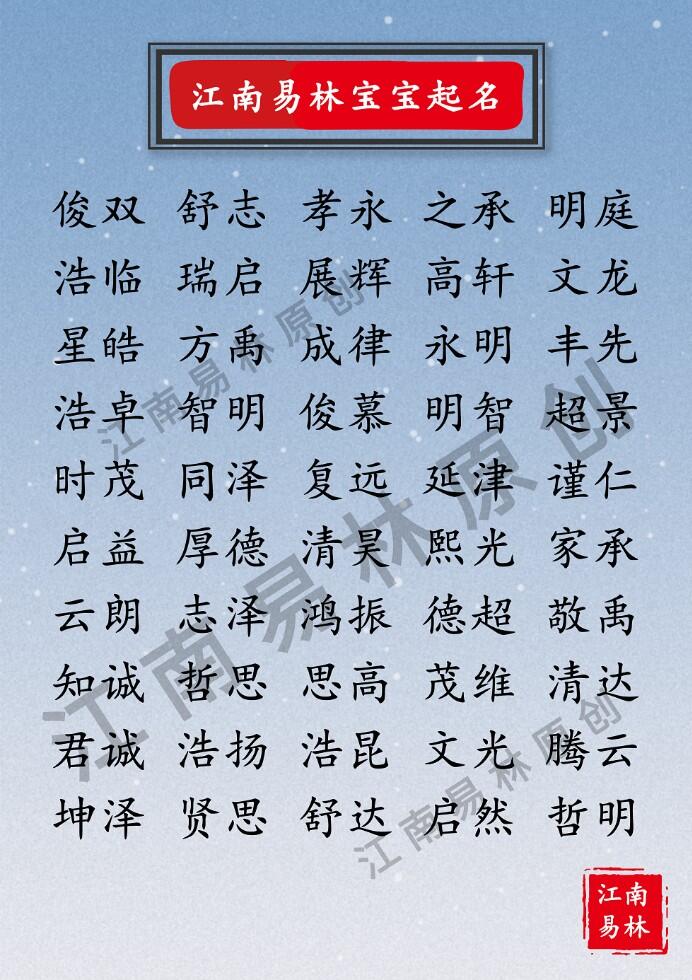 江南易林宝宝起名
俊双 舒志 孝永 之承 明庭
浩临 瑞启 展辉 高轩 文龙
星皓 方禹 成律 永明 丰先
浩卓 智明 俊慕 明智 超景
时茂 同泽 复远 延津 谨仁
启益 厚德 清昊 熙光 家承
云朗 志泽 鸿振 德超 敬禹
知诚 哲思 思高 茂维 清达
君诚 浩扬 浩昆 文光 腾云
坤泽 贤思 舒达 启然 哲明
江南易林原创
江南易林原创
江南易林原创
江南
易林